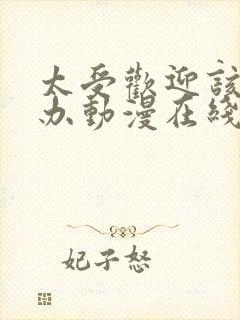 太受歡迎該
办動漫在綫
妃子怒